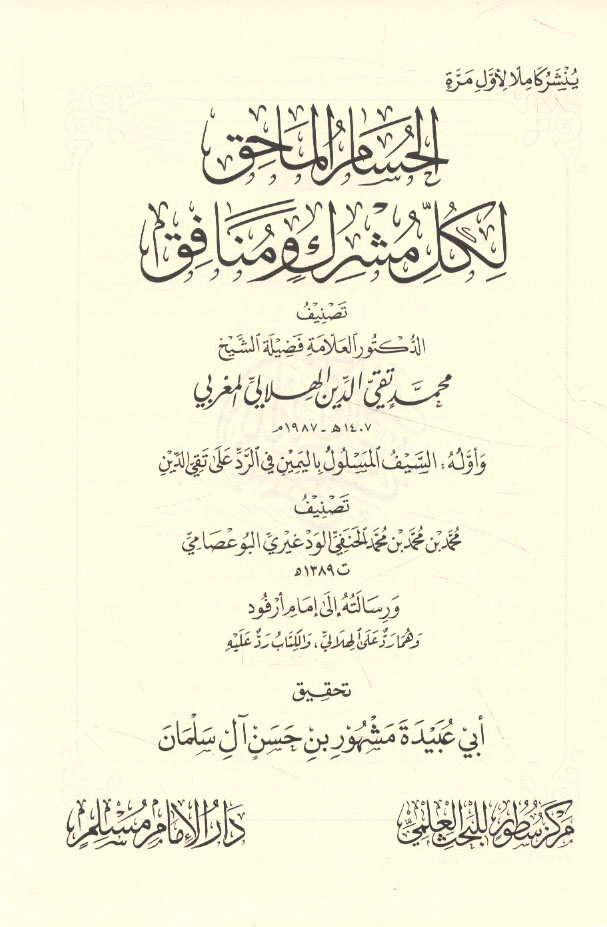 يُنْشَرُ كَامِلًا لِأَوَّلِ مَرَّةٍ
الحُسَامُ المَاحِقُ
لِكُلِّ مُشْرِكٍ وَمُنَافِقٍ
تَصْنِيفُ
الدُّكْتُورِ العَلَّامَةِ فَضِيلَةِ الشَّيْخِ
محمَّد تَقِيِّ الدِّينِ الهِلَالِيِّ المَغْرِبِي
١٤٠٧هـ - ١٩٨٧م
وَأَوَّلُهُ: السَّيْفُ المَسْلُولُ بِاليَمِينِ فِي الرَّدِّ عَلَى تَقِيِّ الدِّينِ
تَصْنِيفُ
مُحَمَّد بْن مُحَمَّد بْن مُحَمَّد الحَنَفِيِّ الوَدْغِيرِيِّ البُوعْصَامِيِّ
ت ١٣٨٩هـ
وَرِسَالَتُهُ إِلَى إِمَامِ أَرْفُود
وَهُمَا رَدٌّ عَلَى الهِلَالِيِّ، وَالكِتَابُ رَدٌّ عَلَيْهِ
تحقيق
أَبِي عُبَيْدَةَ مَشْهُورِ بنِ حَسَنٍ آلِ سَلْمَانَ
مَرْكَز سُطُور لِلْبَحْثِ العِلْمِيِّ
دَارُ الإِمَامِ مُسْلِمٍ